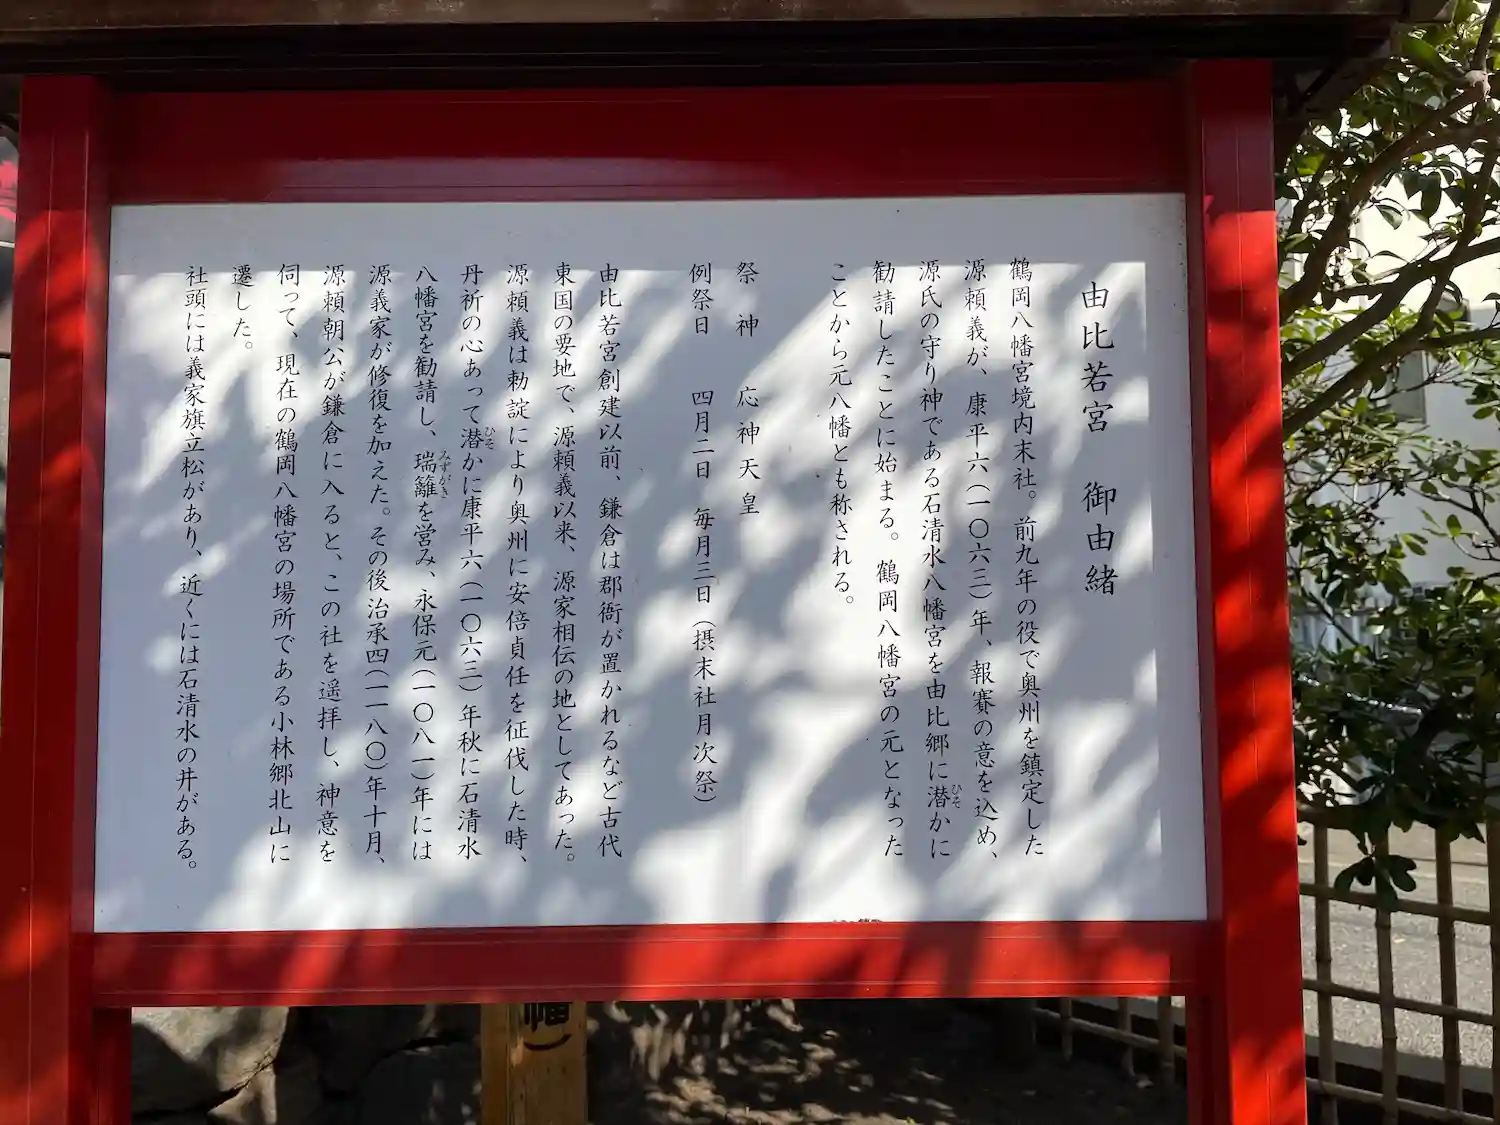 由比若宮　御由緒
鶴岡八幡宮境内末社。前九年の役で奥州を鎮定した
源頼義が、康平六（一〇六三）年、報賽の意を込め、
源氏の守り神である石清水八幡宮を由比郷に潜かに
ひそ
勧請したことに始まる。鶴岡八幡宮の元となった
ことから元八幡とも称される。
祭　神　　応神天皇
例祭日　　四月二日　毎月三日（摂末社月次祭）
由比若宮創建以前、鎌倉は郡衙が置かれるなど古代
東国の要地で、源頼義以来、源家相伝の地としてあった。
源頼義は勅諚により奥州に安倍貞任を征伐した時、
丹祈の心あって潜かに康平六（一〇六三）年秋に石清水
ひそ
八幡宮を勧請し、瑞籬を営み、永保元（一〇八一）年には
みずがき
源義家が修復を加えた。その後治承四（一一八〇）年十月、
源頼朝公が鎌倉に入ると、この社を遥拝し、神意を
伺って、現在の鶴岡八幡宮の場所である小林郷北山に
遷した。
社頭には義家旗立松があり、近くには石清水の井がある。
幡）